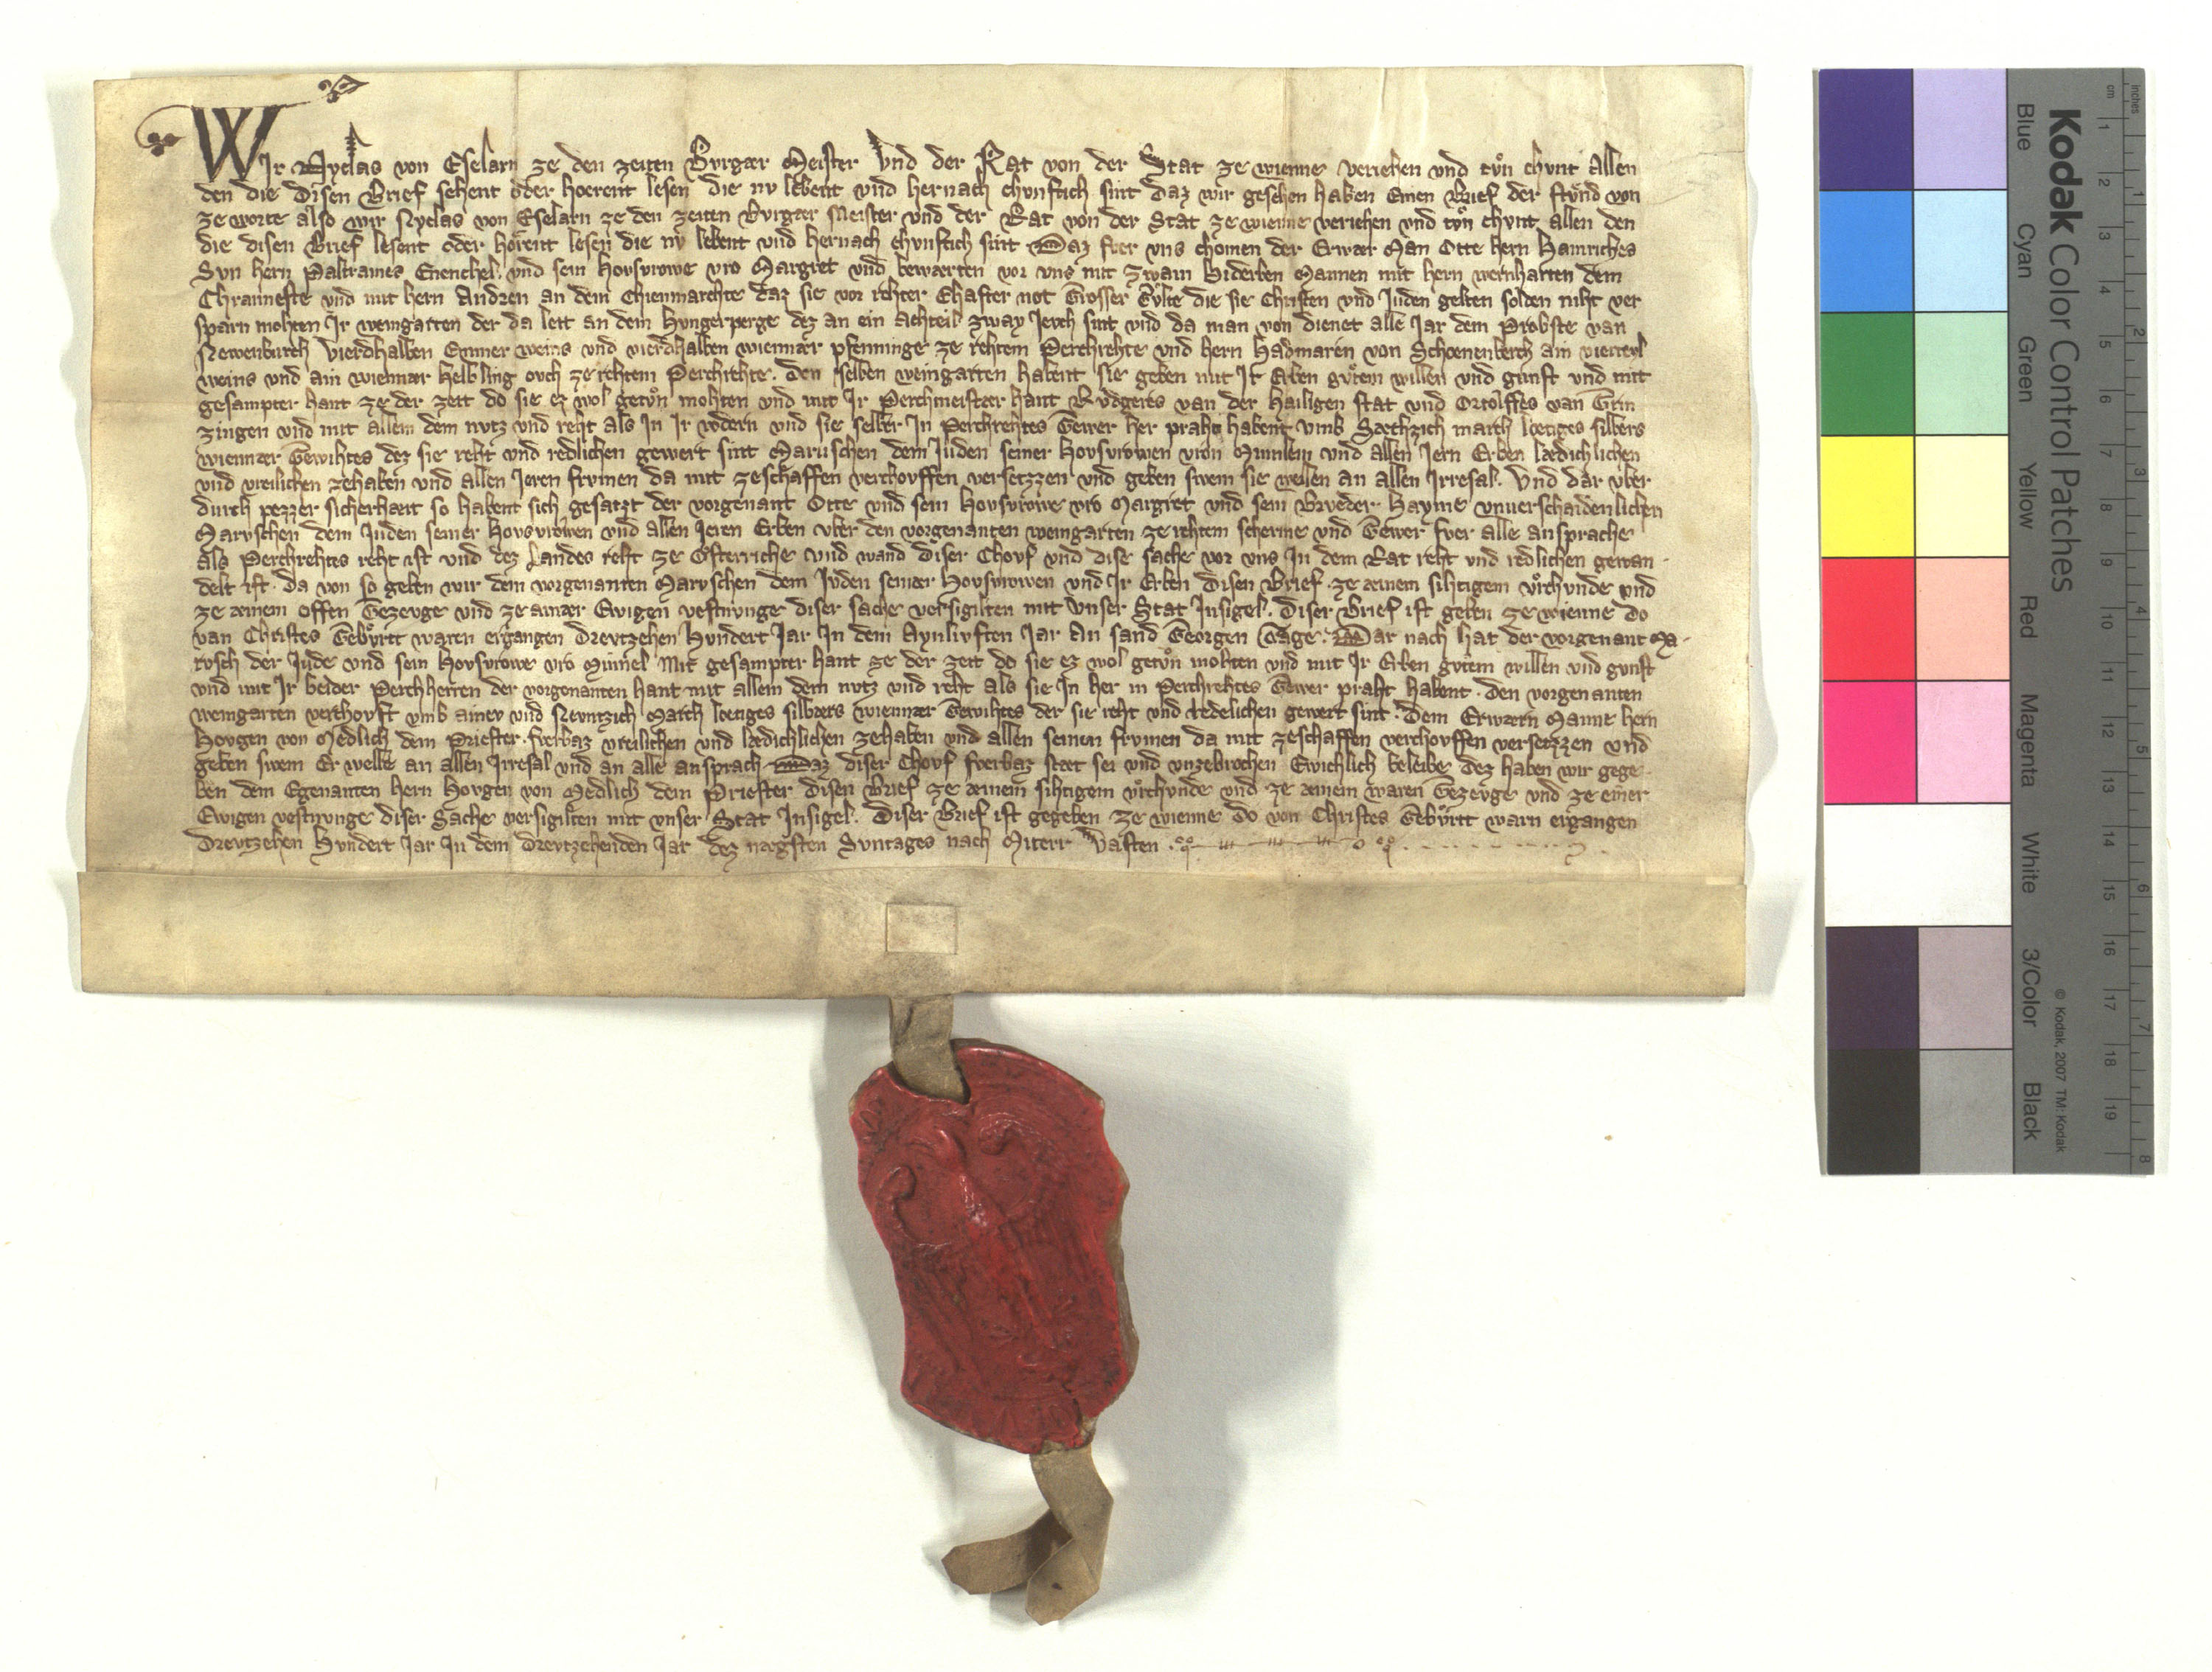 Wir Nyclas von Eselarn ze den zeiten Bvrgær Meister vnd der Rat von der Stat ze wienne veriehen vnd tvͦn chvnt Allen
den die disen Brief sehent oder hoerent lesen die nv lebent vnd hernach chvnftich sint daz wir gesehen haben Einen Brief der stvͦnd von
ze worte also wir Nyclas von Eselarn ze den zeiten Bvrgær Meister vnd der Rat von der Stat ze wienne veriehen vnd tvͦn chvnt allen den
die disen Brief lesent oder hoͤrent lesen die nv lebent vnd hernach chvnftich sint Daz fver vns chomen der Erwær Man Otte hern Hainriches
Svn hern Paltrames Enenchel. vnd sein Hovsvrowe vro Margret vnd bewærten vor vns mit zwain Biderben Mannen mit hern wernharten dem
Chrannefte vnd mit hern Andren an dem Chienmarchte daz sie vor rehter Ehafter not Grosser Gvͤlte die sie Christen vnd Juden gelten solden niht ver
sparn mohten Jr weingarten der da leit an dem Hvngerperge dez an ein Achteil zway Jevch sint vnd da man von dienet alle Jar dem Probste van
Newenburch Vierdhalben Emmer weins vnd vierdhalben wiennær pfenninge ze rehtem Perchrehte vnd hern Hadmaren von Schoenenberch ain vierteyl
weins vnd ain wiennær Helbling ovch ze rehtem Perchrehte. Den selben weingarten habent sie geben mit Jr Erben gvͦtem willen vnd gunst vnd mit
gesampter hant ze der zeit do sie ez wol getvͦn mohten vnd mit Jr Perchmeistær hant Rvdgeres van der Hailigen stat vnd Ortolffes van Grin
zingen vnd mit allem dem nvtz vnd reht als in Jr vodern vnd sie selber Jn Perchrehtes Gewer her praht habent vmb Sæchzich march loetiges silbers
wiennær Gewihtes dez sie reht vnd redlichen gewert sint Maruschen dem Juden seiner Hovsvrowen vron Minnlein vnd allen Jern Erben lædichlichen
vnd vreilichen zehaben vnd allen Jeren frvmen da mit zeschaffen verchovffen versetzzen vnd geben swem sie wellen an allen Jrresal. Vnd dar vber
durch pezzer sicherhait so habent sich gesatzt der vorgenant Otte vnd sein Hovsvrowe vro Margret vnd sein Brveder Hayme vnuerschaidenlichen
Marvschen dem Juden seiner Hovsvrowen vnd allen Jeren Erben vber den vorgenanten weingarten ze rehtem scherme vnd Gewer fver alle ansprache
als Perchrehtes reht ist vnd dez Landes reht ze Osterriche vnd wand diser Chovf vnd dise sache vor vns Jn dem Rat reht vnd redlichen gewan-
delt ist. da von so geben wir dem vorgenanten Marvschen dem Jvden seiner Hovsvrowen vnd Jr Erben disen Brief ze ainem sihtigem vͦrchvnde vnd
ze ainem offen Gezevge vnd ze ainær Ewigen vestnvnge diser sache versigilten mit vnser Stat Jnsigel. Diser Brief ist geben ze wienne do
van Christes Gebvͤrtt waren ergangen Drevtzehen Hvndert Jar Jn dem Aynlivften Jar An sand Georgen Tage. Dar nach hat der vorgenant Ma-
rvsch der Jvde vnd sein Hovsvrowe vro Minnel Mit gesampter hant ze der zeit do sie ez wol getvͦn mohten vnd mit Jr Erben gvtem willen vnd gvnst
vnd mit Jr beider Perchherren der vorgenanten hant mit allem dem nvtz vnd reht als sie Jn her in Perchrehtes Gewer praht habent. den vorgenanten
weingarten verchovft vmb ainev vnd Nevntzich March loetiges silbærs wiennær Gewihtes der sie reht vnd redelichen gewert sint. Dem Erwærn Manne hern
Hovgen von Medlich dem Priester. fverbaz vreilichen vnd lædichlichen zehaben vnd allen seinen frvmen da mit zeschaffen verchovffen versetzzen vnd
geben swem Er welle an allen Jrresal vnd an alle ansprach Daz diser Chovf fverbaz stæt sei vnd vnzebrochen Ewichlich beleibe dez haben wir gege-
ben dem Egenanten hern Hovgen von Medlich dem Priester disen Brief ze ainem sihtigem vͦrchvnde vnd ze ainem waren Gezevge vnd ze einer
Ewigen vestnvnge diser Sache versigilten mit vnser Stat Jnsigel. Diser Brief ist gegeben ze wienne Do von Christes Gebvͤrtt warn ergangen
Drevtzehen Hvndert Jar Jn dem Drevtzehenden Jar dez nægsten Svntages nach Mitterr Vasten
Kodak Color Control Patches
Blue Cyan Green Yellow Red Magenta White 3/Color Black
© Kodak, 2007 TM: Kodak
cm 1 2 3 4 5 6 7 8 9 10 11 12 13 14 15 16 17 18 19
inches 1 2 3 4 5 6 7 8